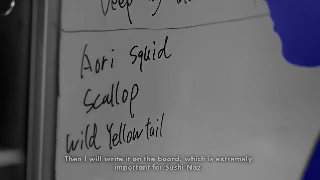 Aori Squid
Scallop
Wild Yellowtail
Then I will write it on the board, which is extremely
important for Sushi Noz.